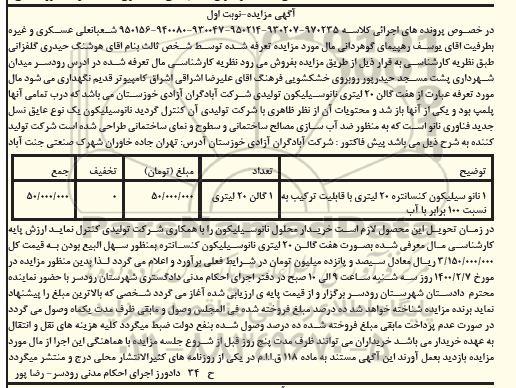 آگهی مزایده-نوبت اول
در خصوص پرونده های اجرائی کلاسه ۹۷۰۲۳۵-۹۳۰۲۰۷-۹۵۰۲۱۴-۹۳۰۰۴۷-۹۴۰۰۸۰-۹۵۰۱۵۶ شعبانعلی عسکری و غیره
بطرفیت آقای یوسف رهپیمای گوهردانی مال مورد مزایده تعرفه شده توسط شخص ثالث بنام آقای هوشنگ حیدری گلفزانی
طبق نظریه کارشناسی به قرار ذیل از طریق مزایده بفروش می رود نظریه کارشناسی مال تعرفه شده در آدرس رودسر میدان
شهرداری پشت مسجد حیدرپور روبروی خشکشویی فرهنگ آقای علیرضا اشراقی اشراق کامپیوتر قدیم نگهداری می شود مال
مورد تعرفه عبارت از هفت گالن ۲۰ لیتری نانوسیلیکون تولیدی شرکت آبادگران آزادی خوزستان می باشد که درب تمامی آنها
پلمب بود و یکی از آنها باز شد و محتویات آن از نظر ظاهری با شرکت تولیدی آن کنترل گردید نانوسیلیکون یک نوع عایق نسل
جدید فناوری نانو است که به منظور ضد آب سازی مصالح ساختمانی و سطوح و نمای ساختمانی طراحی شده است شرکت تولید
کننده به شرح ذیل می باشد پیش فاکتور : شرکت آبادگران آزادی خوزستان آدرس: تهران جاده خاوران شهرک صنعتی جنت آباد
توضیح تعداد مبلغ (تومان) تخفیف جمع
۱ نانو سیلیکون کنسانتره ۲۰ لیتری با قابلیت ترکیب به نسبت ۱۰۰ برابر با آب ۱ گالن ۲۰ لیتری ۵۰/۰۰۰/۰۰۰ ۰ ۵۰/۰۰۰/۰۰۰
در زمان تحویل این محصول لازم است خریدار محلول نانوسیلیکون را با همکاری شرکت تولیدی کنترل نماید ارزش پایه
کارشناسی مال معرفی شده بصورت هفت گالن ۲۰ لیتری نانوسیلیکون کنسانتره بمنظور سهل البیع بودن به قیمت کل
۳/۱۵۰/۰۰۰/۰۰۰ ریال معادل سیصد و پانزده میلیون تومان در شرایط فعلی برآورد و اعلام می گردد لذا بدین منظور مزایده در
مورخ ۱۴۰۰/۲/۷ روز سه شنبه ساعت ۹ الی ۱۰ صبح در دفتر اجرای احکام مدنی دادگستری شهرستان رودسر با حضور نماینده
محترم دادستان شهرستان رودسر برگزار و از قیمت پایه ی ارزیابی شده آغاز می گردد شخصی که بالاترین مبلغ را پیشنهاد
نماید برنده مزایده شناخته خواهد شد ده درصد مبلغ فروخته شده فی المجلس وصول و مابقی ظرف مدت یکماه وصول می گردد
در صورت عدم پرداخت مابقی مبلغ فروخته شده ده درصد وصول شده بنفع دولت ضبط میگردد کلیه هزینه های نقل و انتقال
به عهده خریدار می باشد خریداران می توانند ظرف مدت پنج روز قبل از شروع جلسه مزایده با هماهنگی این اجرا از مال مورد
مزایده بازدید بعمل آورند این آگهی مستند به ماده ۱۱۸ ق.ا.ا.م در یکی از روزنامه های کثیرالانتشار محلی درج و منتشر میگردد
ح ۳۴ دادورز اجرای احکام مدنی رودسر- رضا پور